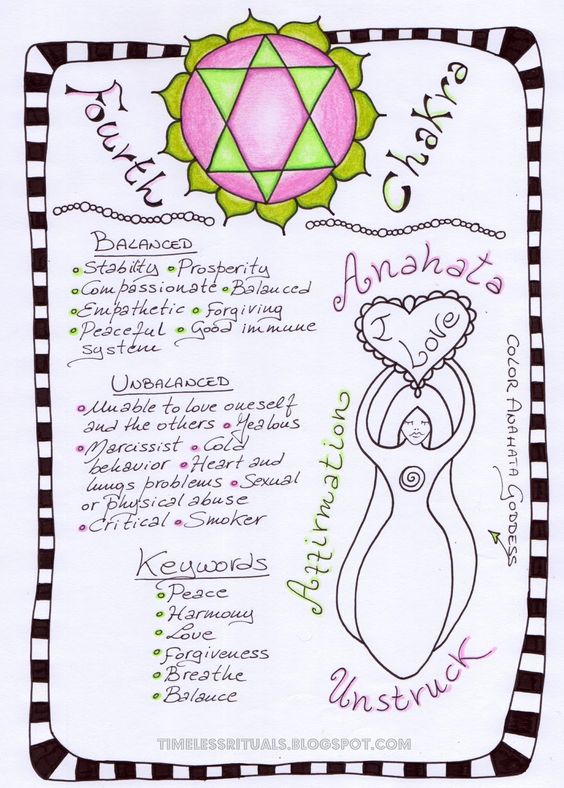 Fourth
Chakra
Balanced
Stability Prosperity
Compassionate Balanced
Empathetic Forgiving
Peaceful Good immune
system
Unbalanced
Unable to love oneself
and the others Yealous
Marcissist Cold
behavior Heart and
lungs problems Sexual
or physical abuse
Critical Smoker
Keywords
Peace
Harmony
Love
Forgiveness
Breathe
Balance
Anahata
I
Love
Affirmation
Color Anahata Goddess
Unstruck
TIMELESSRITUALS.BLOGSPOT.COM